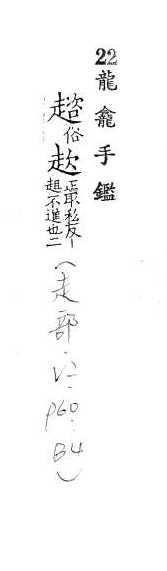 22龍龕手鑑
趦俗趑正取私反丨
趄不進也二
(走部.
p60.
B4)